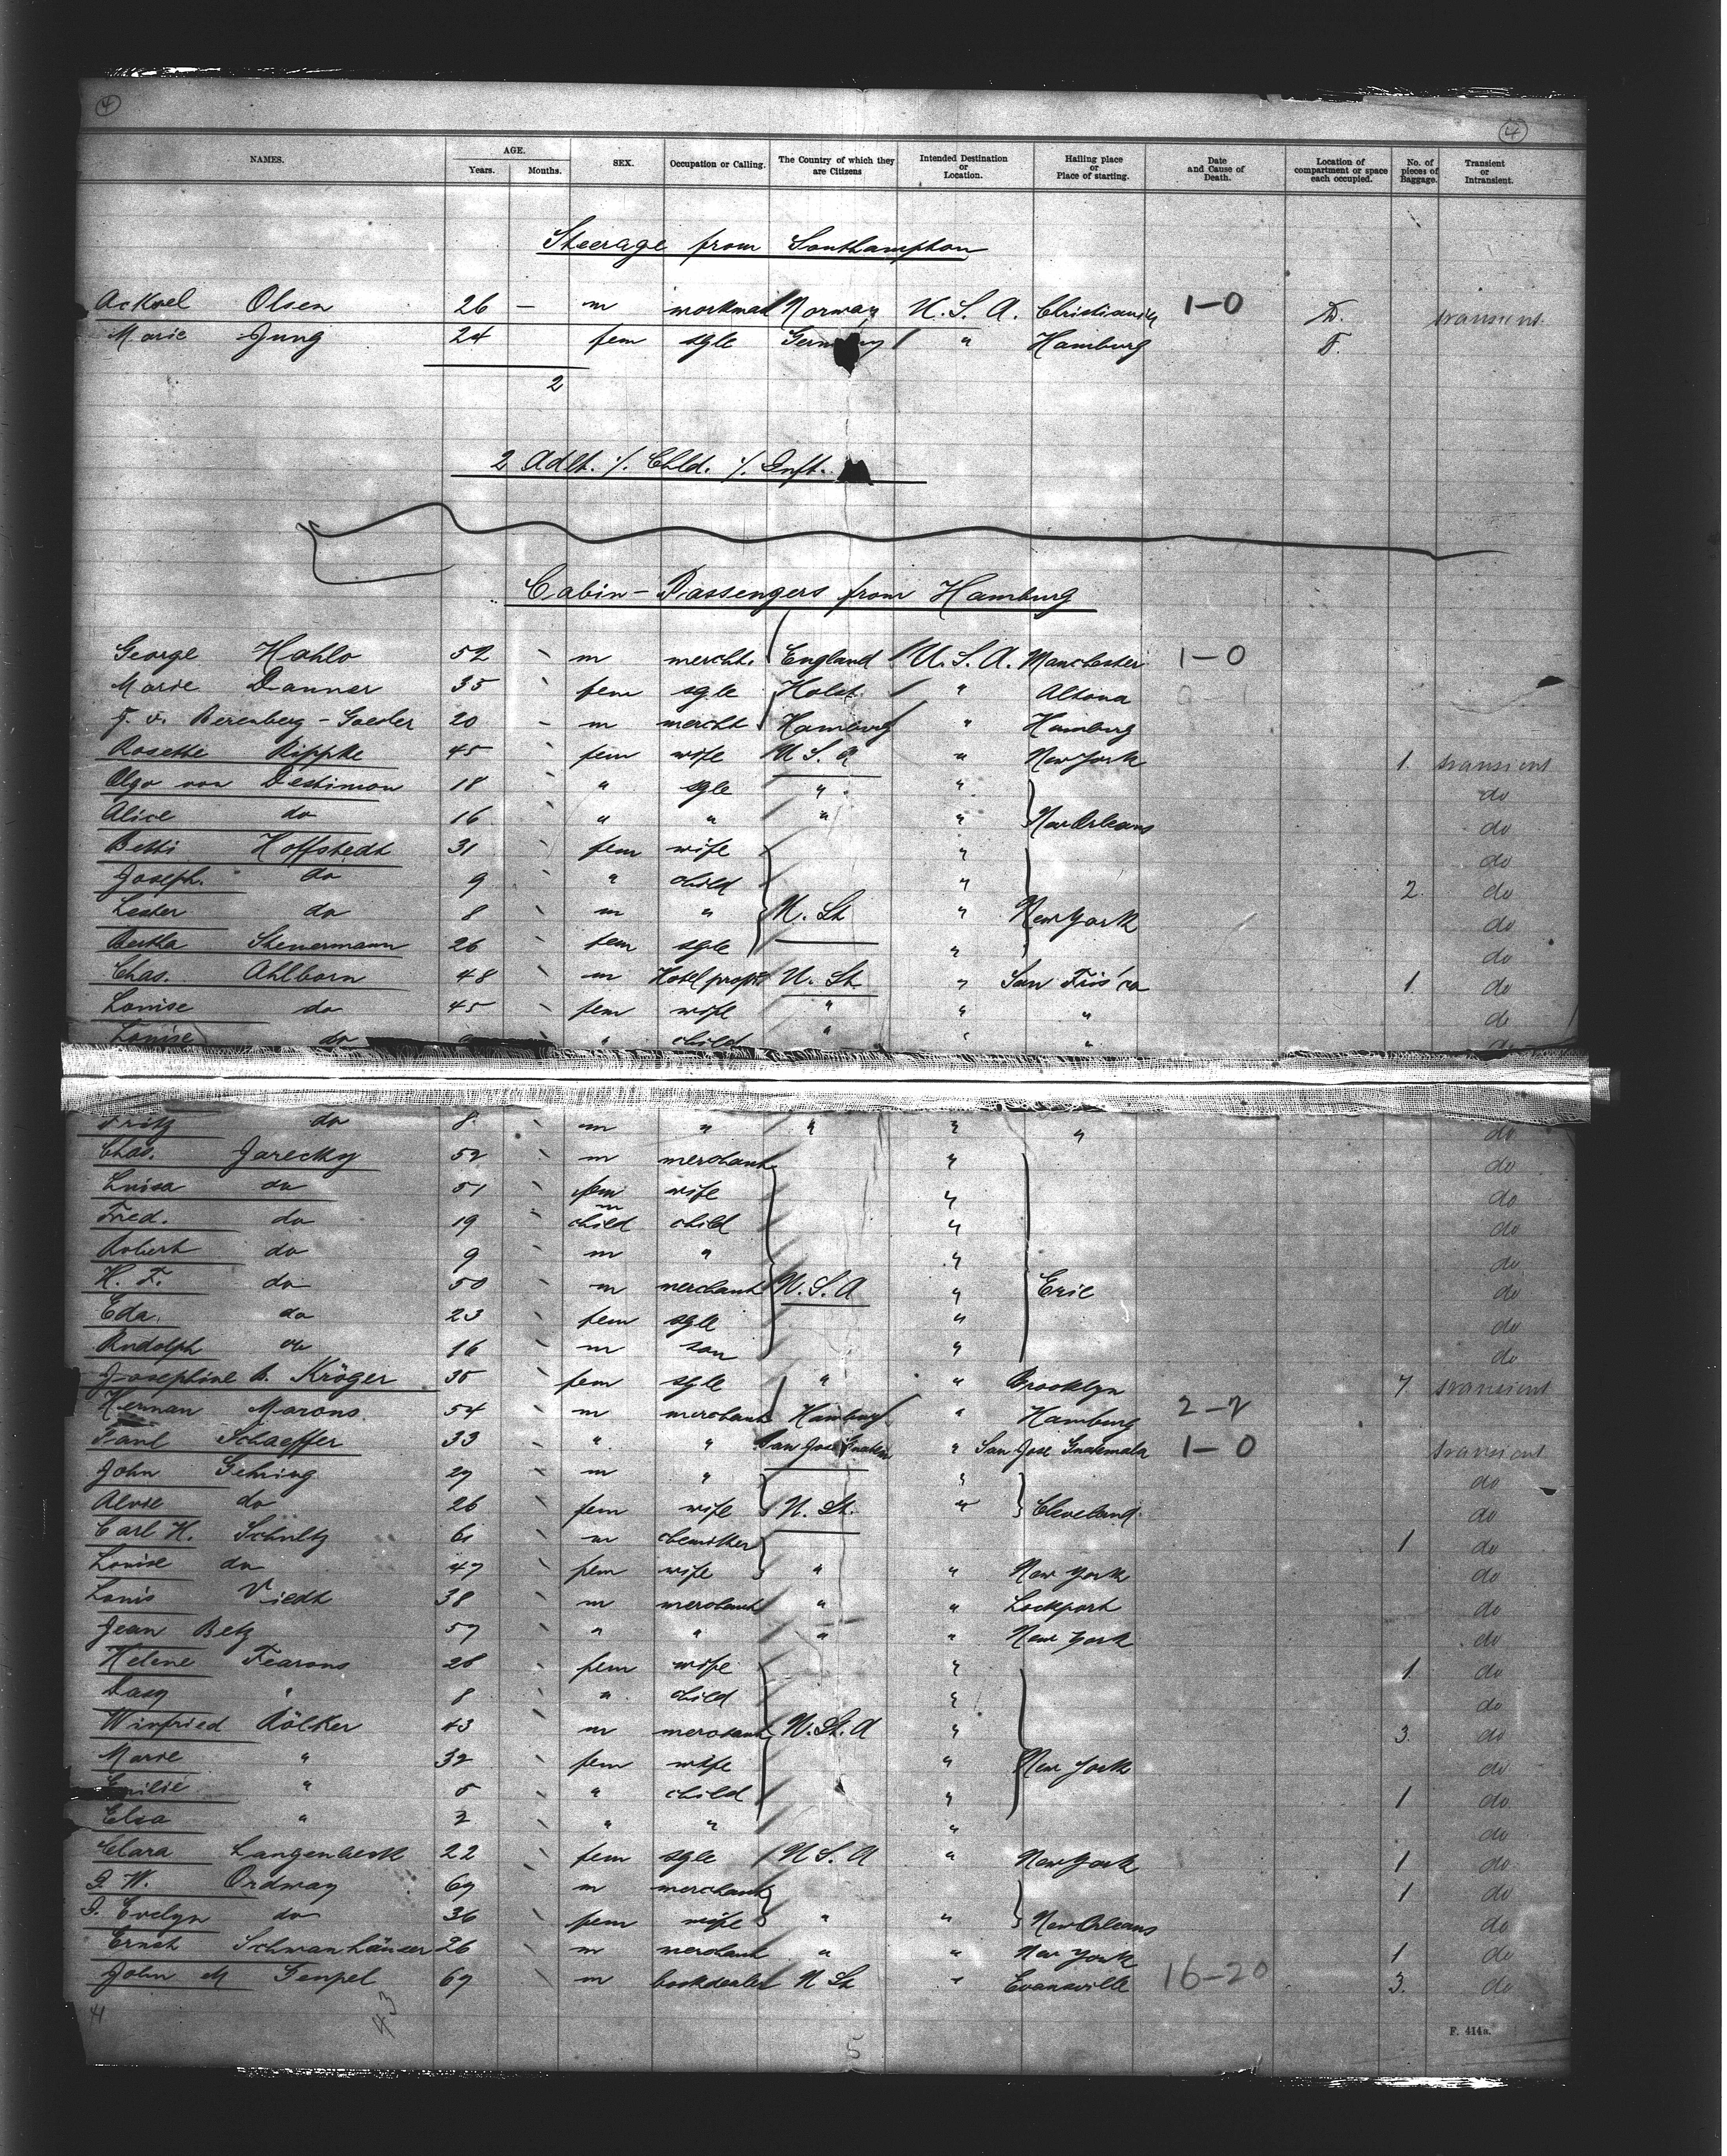 4
4
NAMES. AGE. Years. Months. SEX. Occupation or Calling. The Country of which they are Citizens Intended Destination or Location. Hailing place or Place of starting. Date and Cause of Death. Location of compartment or space each occupied. No. of pieces of Baggage. Transient or Intransient.
Steerage from Southampton
Acksel Olsen 26 – m workman Norway U. S. A. Christiania 1–0 D. transient.
Marie Jung 24 fem sgle Germany " Hamburg F.
2
2 Adlt. ·/. Chld. ·/. Inft.
Cabin – Passengers from Hamburg
George Hahlo 52 m mercht. England U. S. A. Manchester 1–0
Marie Danner 35 fem sgle Holst. " Altona
J. v. Berenberg – Gossler 20 – m mercht Hamburg " Hamburg
Rosette Rippke 45 fem wife U. S. A " New York 1. transient
Olga von Destinon 18 " sgle " " do
Alice do 16 " " " " New Orleans do
Betti Hoffstedt 31 fem wife " do
Joseph. do 9 " child " 2. do
Lester do 8 m " U. St " New York do
Bertha Steuermann 26 fem sgle " do
Chas. Ahlborn 48 m Hotelpropr U. St. " San Fris'co 1. do
Louise do 45 fem wife " " " do
Louise do " child " " " do
Fritz do 8. m " " " " do
Chas. Jarecky 52 m merchant " do
Luisa do 51 fem wife " do
Fred. do 19 m child child " do
Robert do 9 m " " do
H. F. do 50 m merchant U. S. A " Erie do
Eda. do 23 fem sgle " do
Rudolph do 16 m son " do
Josephine B. Kröger 35 fem sgle " " Brooklyn 7. transient
Herman Marons 54 m merchant Hamburg " Hamburg 2–2
Paul Schaeffer 33 " " San Jose Guatem " San Jose Guatemala 1–0 transient
John Gehring 29 m " " do
do 26 fem wife U. St. " Cleveland. do
Carl H. Schultz 61 m chemiker 1 do
Louise do 47 fem wife " " New York do
Louis Viedt 38 m merchant " " Lockport do
Jean Betz 57 " " " " New York do
Helene Fearons 28 fem wife " 1. do
Dasy " 8 " child " do
Winfried Rölker 43 m merchant U. St. A " 3. do
Marie " 32 fem wife " New York do
Emilie " 5 " child " 1 do
Elsa " 2 " " " do
Clara Langenbeck 22 fem sgle U S. A " New York 1 do
J. W. Ordway 69 m merchant 1 do
J. Evelyn do 36 fem wife " " New Orleans do
Ernst Schwanhäuser 26 m merchant " " New York 1 do
John M Gempel 69 m bookdealer U St " Evansville 16–20 3. do
41
43
5
F. 414a.